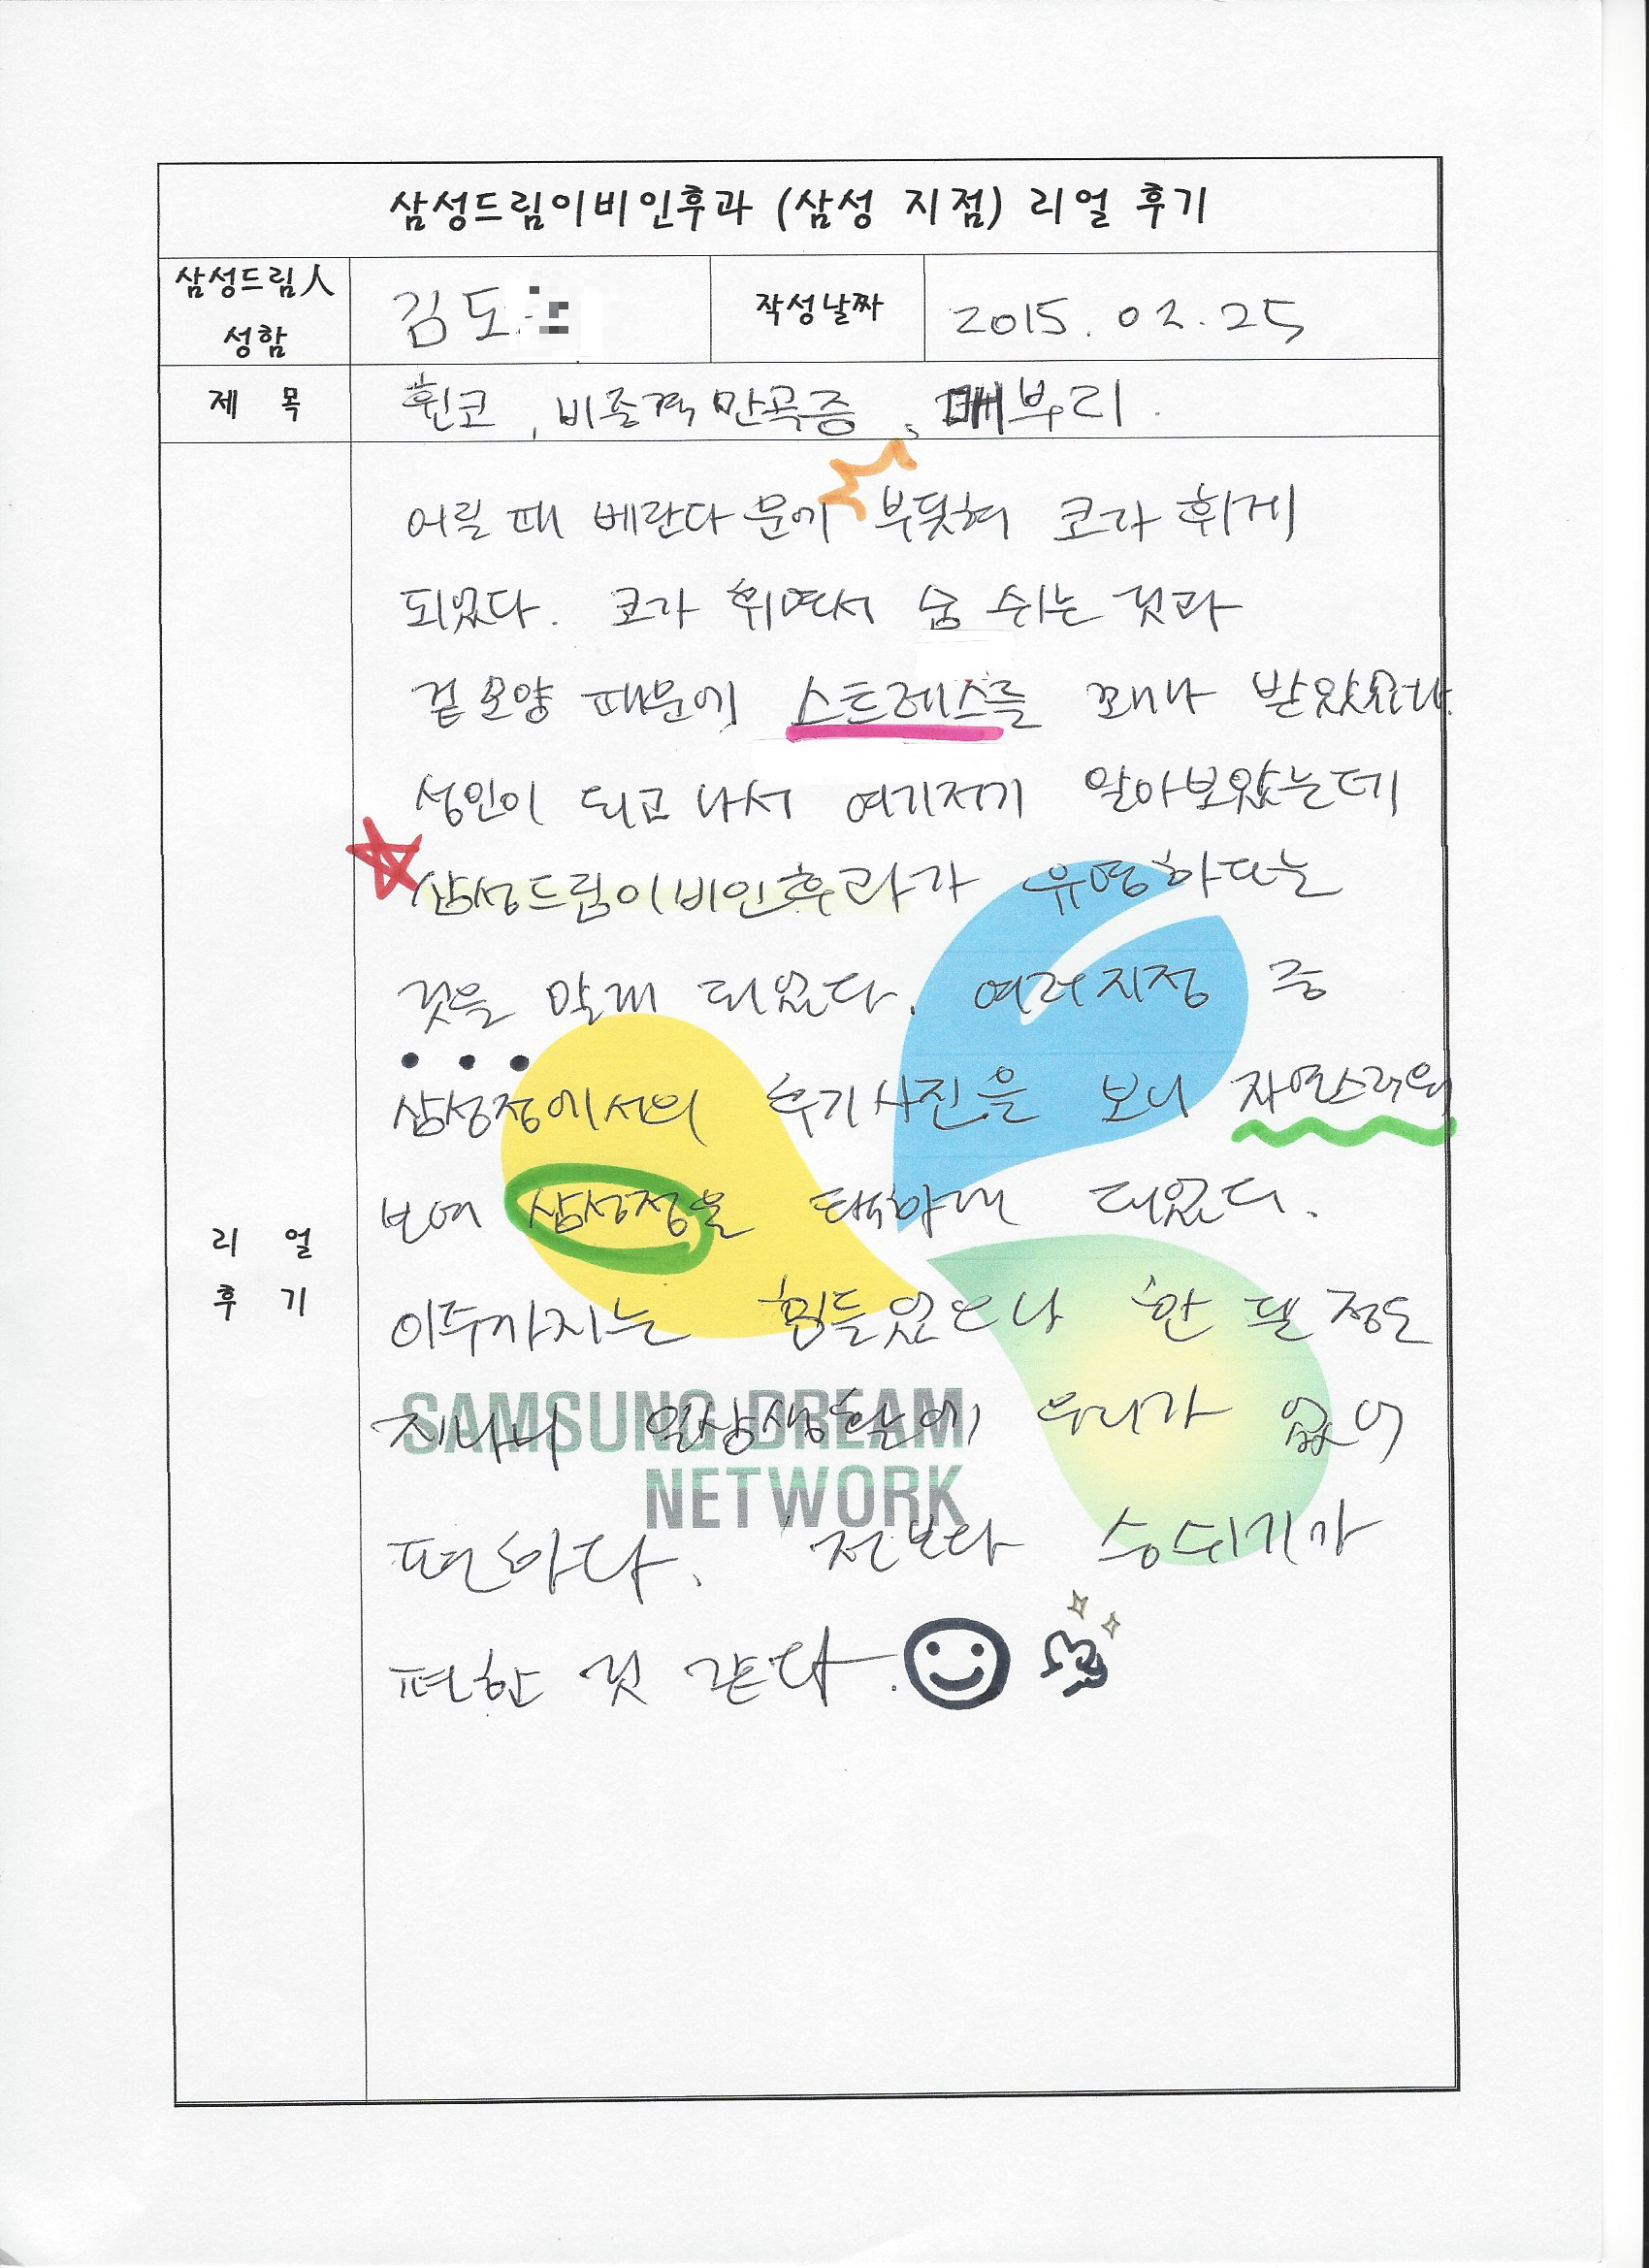 삼성드림이비인후과 (삼성 지점) 리얼 후기
삼성드림人 성함 김도 작성날짜 2015. 02. 25
제 목 휜코, 비중격만곡증, 매부리.
리 얼 후 기
어릴 때 베란다 문에 부딪혀 코가 휘게
되었다. 코가 휘면서 숨 쉬는 것과
겉모양 때문에 스트레스를 꽤나 받았었다.
성인이 되고 나서 여기저기 알아보았는데
삼성드림이비인후과가 유명하다는
것을 알게 되었다. 여러지점 중
삼성점에서의 후기사진을 보니 자연스러워
보여 삼성점을 택하게 되었다.
이주까지는 힘들었으나 한 달 정도
지나니 일상생활에 무리가 없어
편하다. 전보다 숨쉬기가
편한 것 같다.
SAMSUNG DREAM
NETWORK